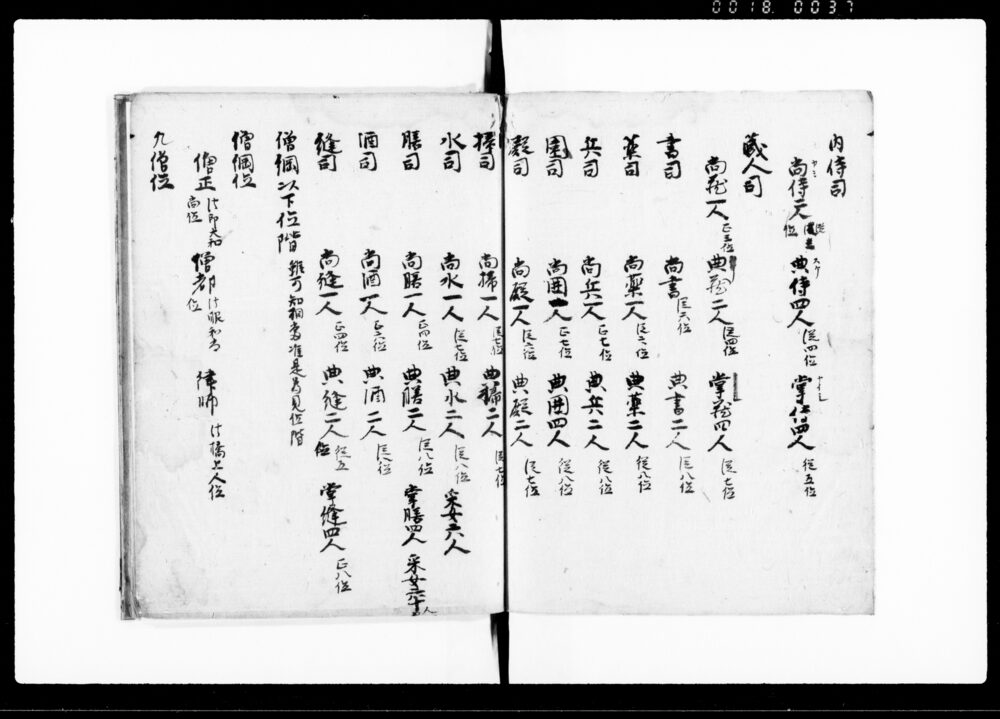 0018 0037
内侍司
尚侍二人 従 位 典侍四人 従四位 掌侍四人 従五位
蔵人司
尚蔵一人 正三位 典蔵二人 従四位 掌蔵四人 従七位
書司 尚書 従六位 典書二人 従八位
薬司 尚薬一人 従六位 典薬二人 従八位
兵司 尚兵一人 正七位 典兵二人 従八位
闈司 尚闈一人 正七位 典闈四人 従八位
殿司 尚殿一人 従六位 典殿二人 従七位
掃司 尚掃一人 従七位 典掃二人 従七位
水司 尚水一人 従七位 典水二人 従八位 采女六人
膳司 尚膳一人 正四位 典膳二人 従八位 掌膳四人 采女六十人
酒司 尚酒一人 正六位 典酒二人 従八位
縫司 尚縫一人 正四位 典縫二人 従五位 掌縫四人 正八位
僧綱以下位階 雖可知相当准是為見位階
僧綱位
僧正 法印大和尚位 僧都 法眼和尚位 律師 法橋上人位
凡僧位